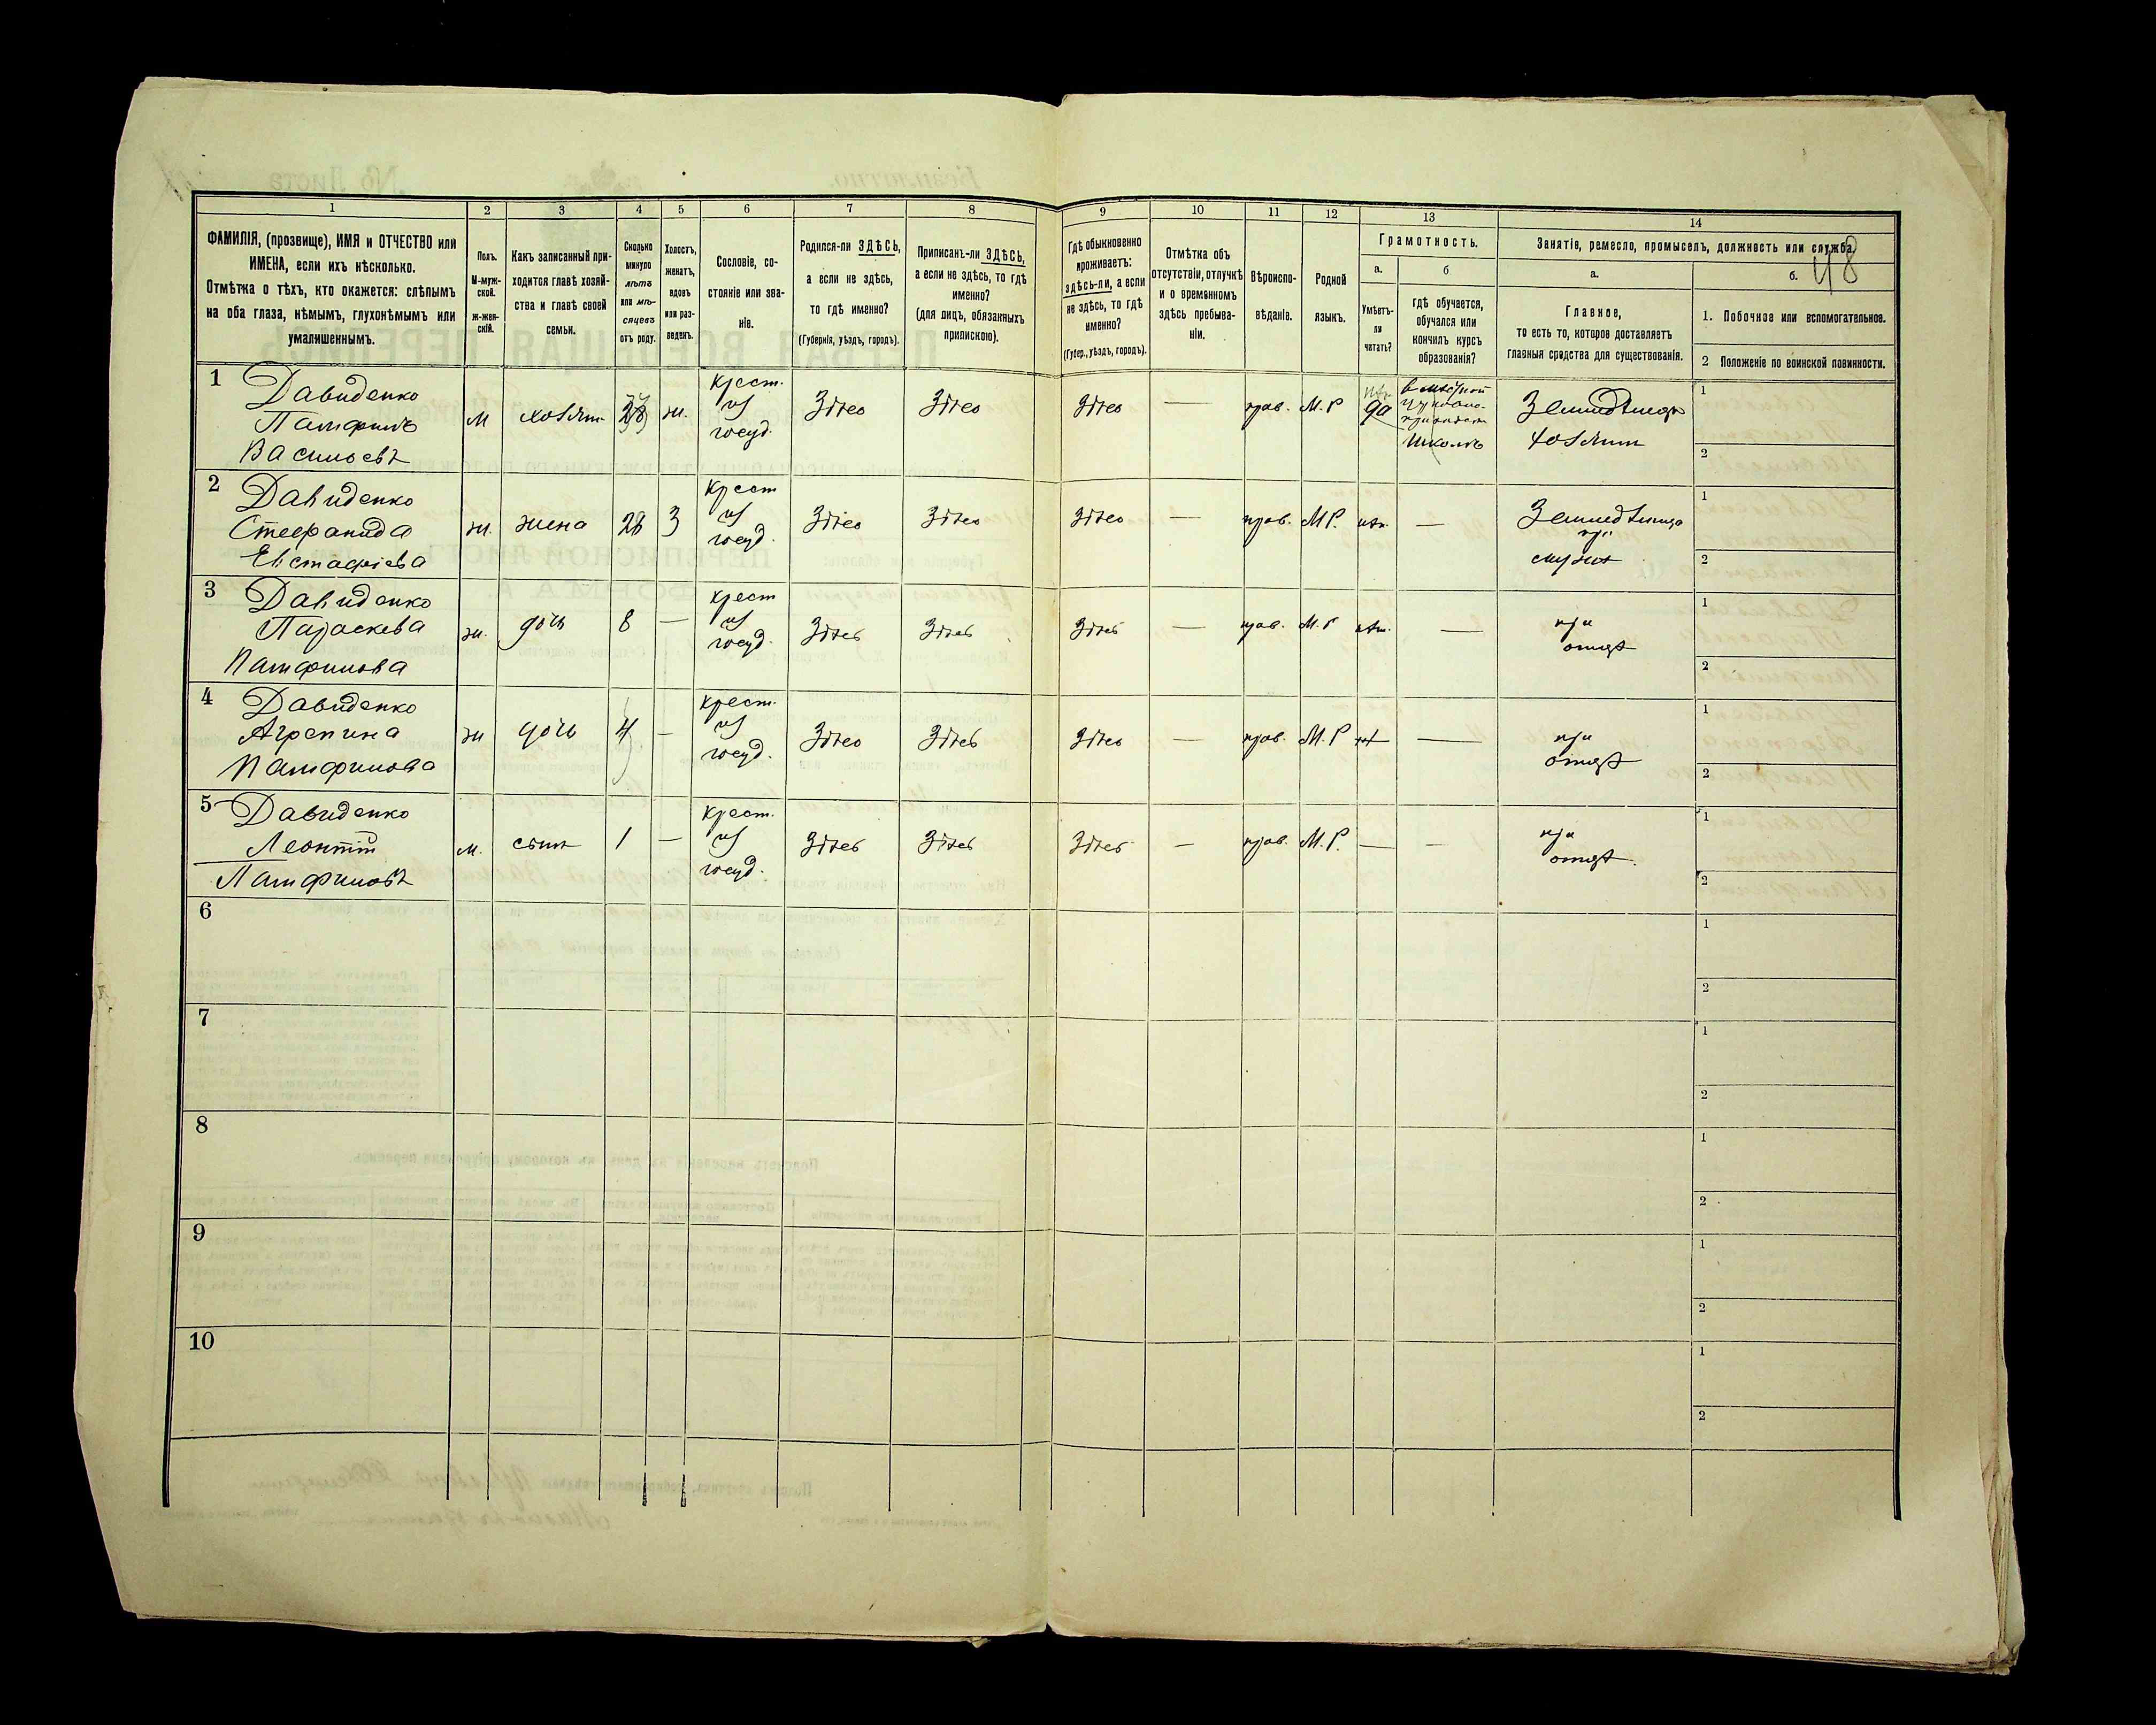 48
1 2 3 4 5 6 7 8 9 10 11 12 13 14
ФАМИЛІЯ, (прозвище), ИМЯ и ОТЧЕСТВО или
ИМЕНА, если ихъ нѣсколько.
Отмѣтка о тѣхъ, кто окажется: слѣпымъ
на оба глаза, нѣмымъ, глухонѣмымъ или
умалишеннымъ.
Полъ.
М-муж-
ской.
ж-жен-
скій.
Какъ записанный при-
ходится главѣ хозяй-
ства и главѣ своей
семьи.
Сколько
минуло
лѣтъ
или мѣ-
сяцевъ
отъ роду.
Холостъ,
женатъ,
вдовъ
или раз-
веденъ.
Сословіе, со-
стояніе или зва-
ніе.
Родился-ли ЗДѢСЬ,
а если не здѣсь,
то гдѣ именно?
(Губернія, уѣздъ, городъ).
Приписанъ-ли ЗДѢСЬ,
а если не здѣсь, то гдѣ
именно?
(для лицъ, обязанныхъ
припискою).
Гдѣ обыкновенно
проживаетъ:
здѣсь-ли, а если
не здѣсь, то гдѣ
именно?
(Губер., уѣздъ, городъ).
Отмѣтка объ
отсутствіи, отлучкѣ
и о временномъ
здѣсь пребыва-
ніи.
Вѣроиспо-
вѣданіе.
Родной
языкъ.
Грамотность.
а.
Умѣетъ-
ли
читать?
б
гдѣ обучается,
обучался или
кончилъ курсъ
образованія?
Занятія, ремесло, промыселъ, должность или служба.
а.
Главное,
то есть то, которое доставляетъ
главныя средства для существованія.
б.
1. Побочное или вспомогательное.
2 Положеніе по воинской повинности.
1 Давиденко
Памфилъ
Васильевъ
м
хозяин
ж.
крест.
из
госуд.
Здесь
Здесь
Здесь
—
прав.
М.Р
да
школѣ
Земледелец
хозяин
1
2
2 Давиденко
Стефанида
Евстафіева
ж.
жена
28
З
крест
из
госуд.
Здесь
Здесь
Здесь
—
прав.
М.Р.
нет.
—
Земледелица
при
муже
1
2
3 Давиденко
Параскева
Памфилова
ж.
дочь
8
—
крест
из
госуд.
Здесь
Здесь
Здесь
—
прав.
М.Р
нет.
—
при
отце
1
2
4 Давиденко
Агрепина
Памфилова
ж
дочь
4
—
крест.
из
госуд.
Здесь
Здесь
Здесь
—
прав.
М.Р
нет
—
при
отце
1
2
5 Давиденко
Леонтій
Памфиловъ
м.
сынъ
1
—
крест.
из
госуд.
Здесь
Здесь
Здесь
—
прав.
М.Р.
—
—
при
отце.
1
2
6
1
2
7
1
2
8
1
2
9
1
2
10
1
2